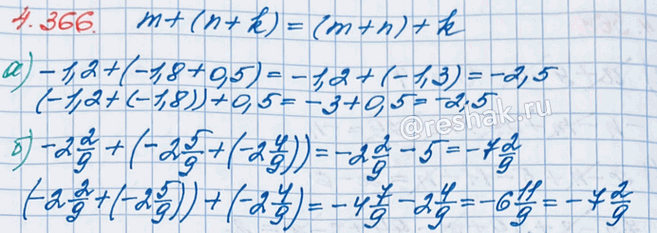 4.366. m+(n+k)=(m+n)+k
а) -1,2+(-1,8+0,5)=-1,2+(-1,3)=-2,5
(-1,2+(-1,8))+0,5=-3+0,5=-2,5
@reshak.ru
б) -2 2/9 + (-2 5/9 + (-2 4/9)) = -2 2/9 - 5 = -7 2/9
(-2 2/9 + (-2 5/9)) + (-2 4/9) = -4 7/9 - 2 4/9 = -6 11/9 = -7 2/9